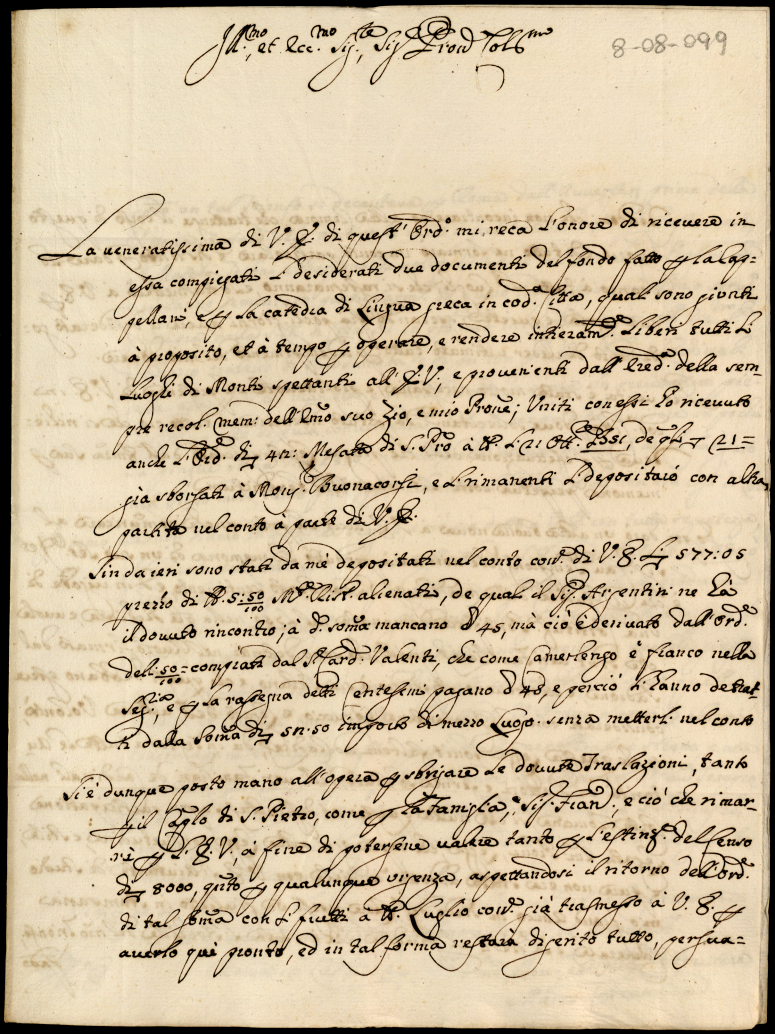 Ill.mo, et Ecc.mo Sig.re, Sig.r Pron Col.mo
8-08-099
La veneratissima di V. E. di quest' Ord.o mi reca l'onore di ricevere in
essa compiegati li desiderati due documenti del fondo fatto p la Cap-
pellani, e p la catedra di Lingua greca in cod.a Città, quali sono giunti
à proposito, et à tempo p operare, e rendere intieram.e liberi tutti li
Luoghi di Monti spettanti all' E. V., e provenienti dall' Ered.à della sem-
pre recol. mem: dell' Emo suo Zio, e mio Prone; Uniti con essi ho ricevuto
anche l' Ord.e di 42: Mesatto di S. Pro à
già sborsati à Mons.r Buonacorsi, e li rimanenti li depositaiò con altra
partita nel conto à parte di V. E.
Sin da ieri sono stati da mè depositati nel conto con.e di V. E. 577:05
prezzo di 5:50/100 alienati, de quali il Sig.r Argentini ne hà
il dovuto rincontro; à d.a soma mancano 45, mà ciò è derivato dall' Ord.e
dell 50/100 compiati dal S.r Card. Valenti, che come Camerlengo è franco nella
Seg.ria, e p la rassegna delli Centesimi pagano 45, e perciò li hanno detrat-
ti dalla Soma di 52.50 importo di mezzo Luogo. senza metterli nel conto
Si è dunque posto mano all' opera p sbrigare le dovute Traslazioni, tanto
p il Caplo di S. Pietro, come p la Famiglia, Sig.r Fran.co, e ciò che rimar-
rà p l' E. V., à fine di potersene valere tanto p l'estinz.e del Censo
di 8000, q.to p qualunque urgenza, aspettandosi il ritorno dell' Ord.e
di tal soma con li frutti à Luglio con.e già trasmesso à V. E. p
averlo quì pronto, ed in tal forma restarà digerito tutto, persua=